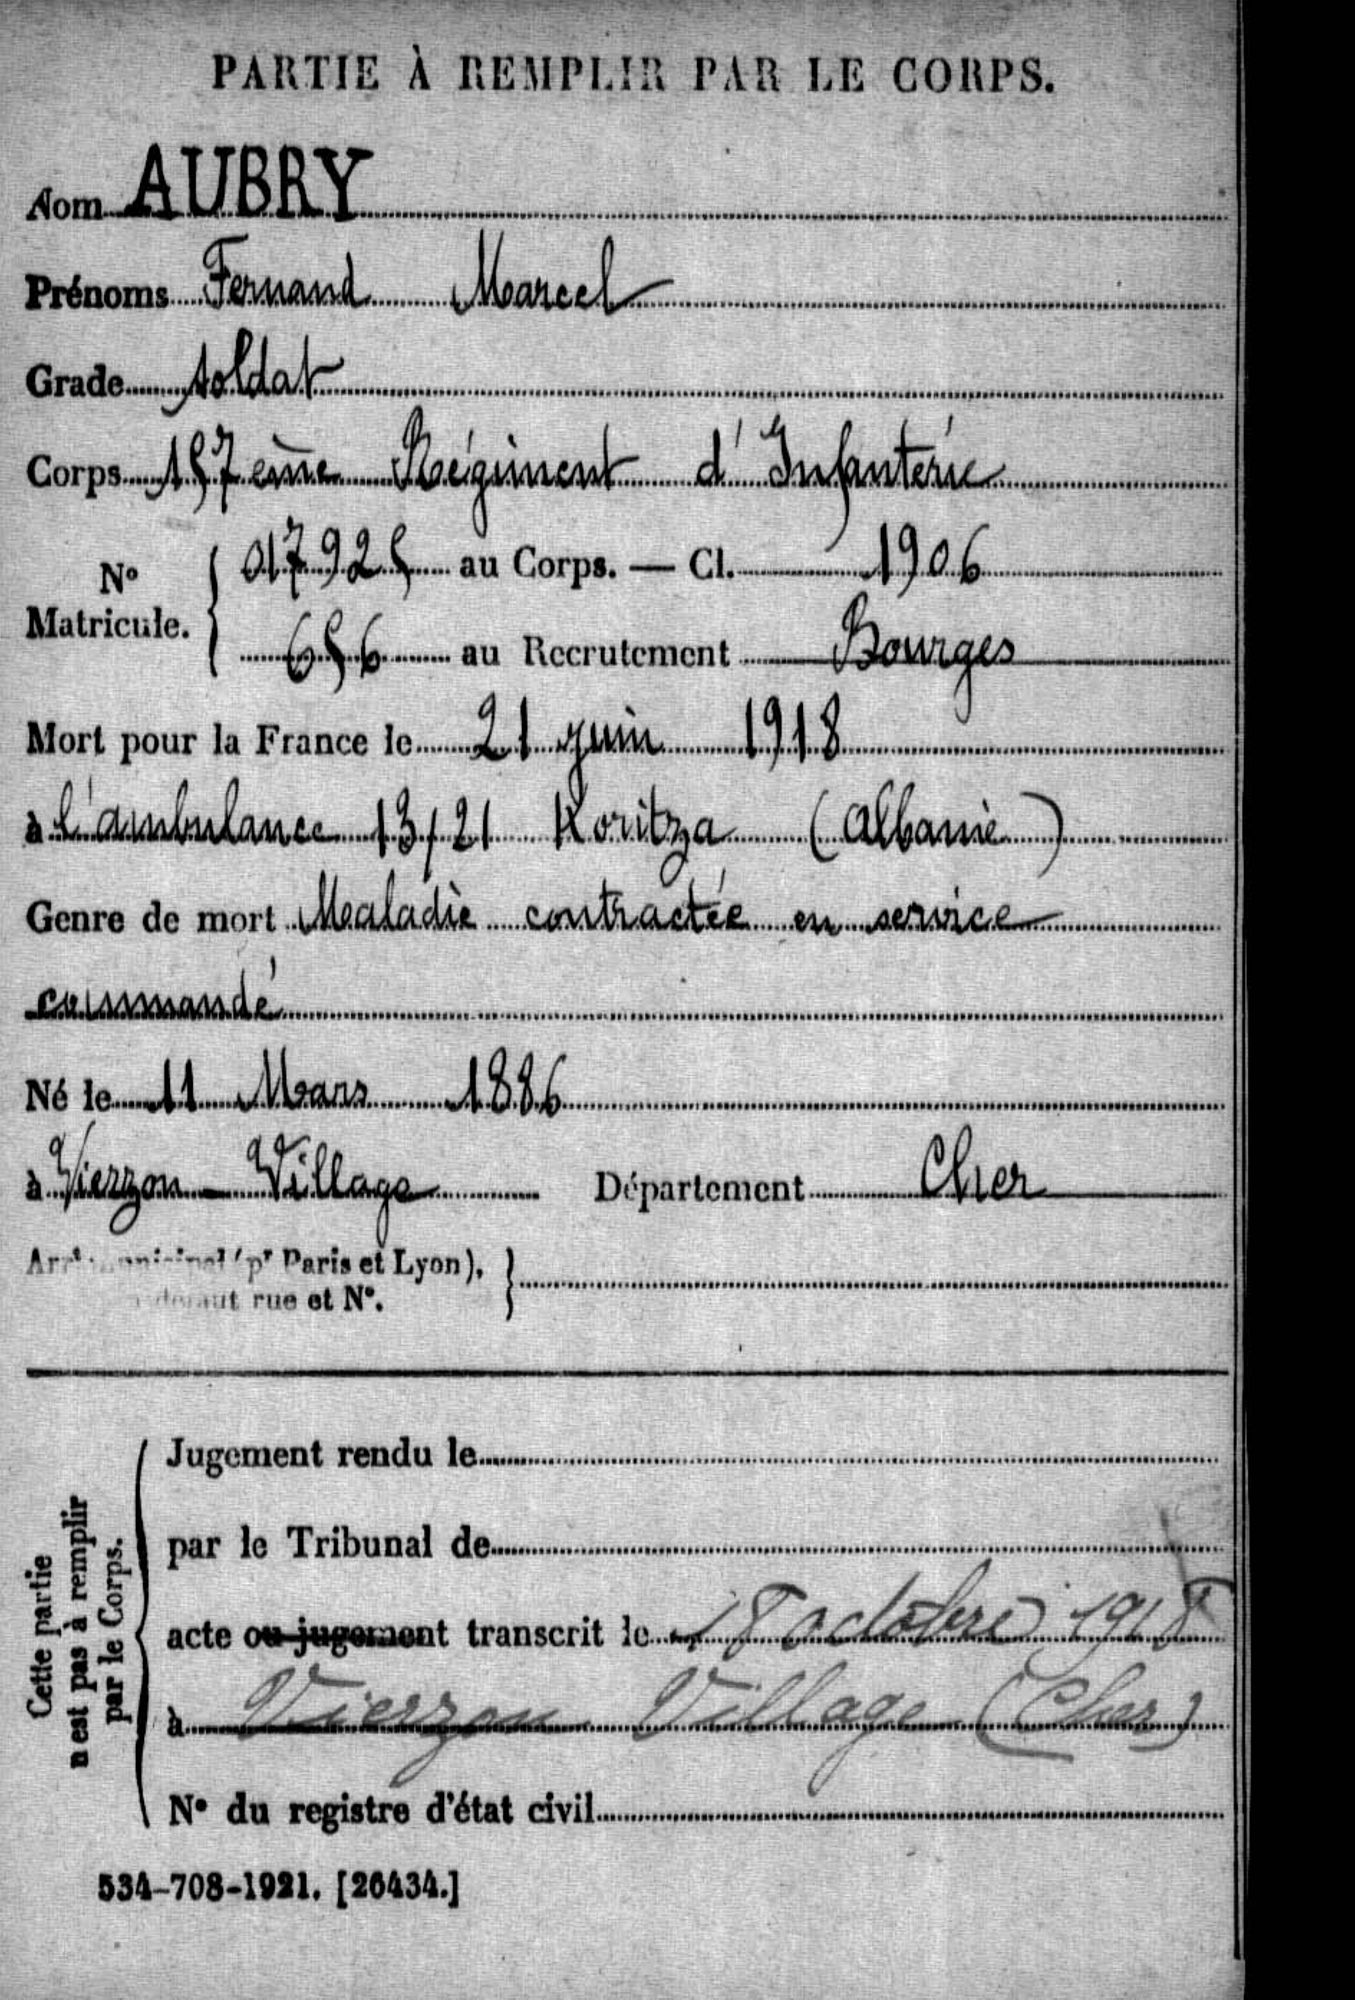 PARTIE À REMPLIR PAR LE CORPS.
Nom AUBRY
Prénoms Fernand Marcel
Grade soldat
Corps 157eme Régiment d'Infanterie
N° Matricule. { 017925 au Corps. — Cl. 1906
656 au Recrutement Bourges
Mort pour la France le 21 juin 1918
à l'ambulance 13/21 Koritza (Albanie)
Genre de mort Maladie contractée en service
commandé
Né le 11 Mars 1886
à Vierzon-Village Département Cher
Arrt municipal (pr Paris et Lyon),
défaut rue et N°.
Cette partie
n'est pas à remplir
par le Corps.
Jugement rendu le
par le Tribunal de
acte ou jugement transcrit le 18 octobre 1918
à Vierzon Village (Cher)
N° du registre d'état civil
534-708-1921. [26434.]